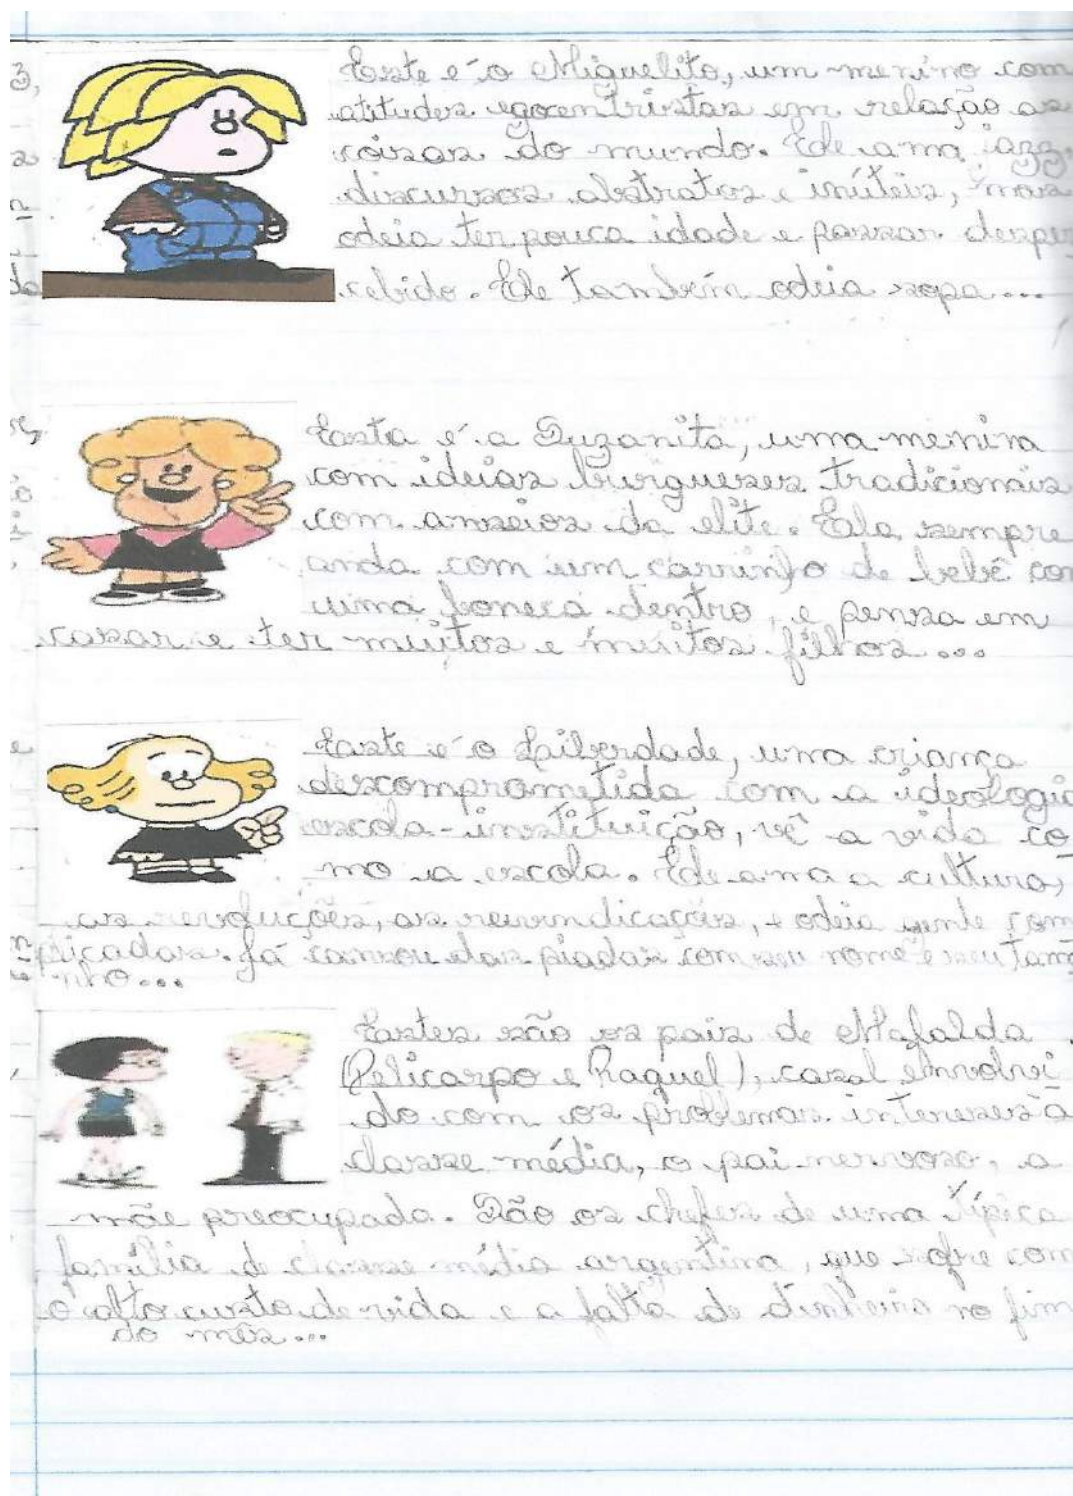 Este é o Miguelito, um menino com
atitudes egocentristas em relação as
coisas do mundo. Ele ama jazz,
discursos abstratos e inúteis, mais
odeia ter pouca idade e passar desper
cebido. Ele também odeia sopa...
Esta é a Suzanita, uma menina
com ideias burgueses tradicionais
com anseios da elite. Ela sempre
anda com um carrinho de bebê com
uma boneca dentro, e pensa em
casar e ter muitos e muitos filhos...
Este é o Liberdade, uma criança
descomprometida com a ideologia
escola-instituição, vê a vida co
mo a escola. Ele ama a cultura,
as revoluções, as reivindicações, e odeia gente com
plicadas. Já cansou das piadas com seu nome e seu tama
nho...
Estes são os pais de Mafalda
(Pelicarpo e Raquel), casal envolvi
do com os problemas interesses a
classe média, o pai nervoso, a
mãe preocupada. São os chefes de uma típica
família de classe média argentina, que sofre com
o alto custo de vida e a falta de dinheiro no fim
do mês...